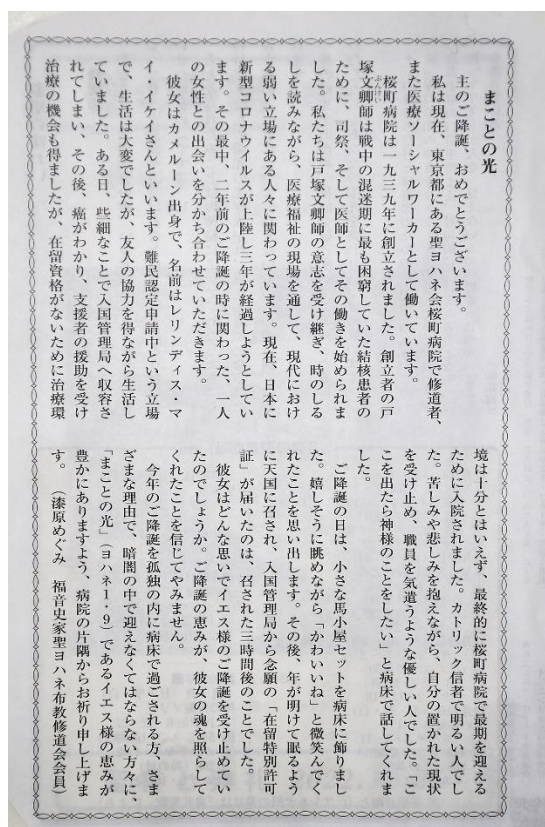 まことの光
主のご降誕、おめでとうございます。
私は現在、東京都にある聖ヨハネ会桜町病院で修道者、
また医療ソーシャルワーカーとして働いています。
桜町病院は一九三九年に創立されました。創立者の戸
塚文卿師は戦中の混迷期に最も困窮していた結核患者の
ために、司祭、そして医師としてその働きを始められま
した。私たちは戸塚文卿師の意志を受け継ぎ、時のしる
しを読みながら、医療福祉の現場を通して、現代におけ
る弱い立場にある人々に関わっています。現在、日本に
新型コロナウイルスが上陸し三年が経過しようとしてい
ます。その最中、二年前のご降誕の時に関わった、一人
の女性との出会いを分かち合わせていただきます。
彼女はカメルーン出身で、名前はレリンディス・マ
イ・イケイさんといいます。難民認定申請中という立場
で、生活は大変でしたが、友人の協力を得ながら生活し
ていました。ある日、些細なことで入国管理局へ収容さ
れてしまい、その後、癌がわかり、支援者の援助を受け
治療の機会も得ましたが、在留資格がないために治療環
境は十分とはいえず、最終的に桜町病院で最期を迎える
ために入院されました。カトリック信者で明るい人でし
た。苦しみや悲しみを抱えながら、自分の置かれた現状
を受け止め、職員を気遣うような優しい人でした。「こ
こを出たら神様のことをしたい」と病床で話してくれま
した。
ご降誕の日は、小さな馬小屋セットを病床に飾りまし
た。嬉しそうに眺めながら「かわいいね」と微笑んでく
れたことを思い出します。その後、年が明けて眠るよう
に天国に召され、入国管理局から念願の「在留特別許可
証」が届いたのは、召された三時間後のことでした。
彼女はどんな思いでイエス様のご降誕を受け止めてい
たのでしょうか。ご降誕の恵みが、彼女の魂を照らして
くれたことを信じてやみません。
今年のご降誕を孤独の内に病床で過ごされる方、さま
ざまな理由で、暗闇の中で迎えなくてはならない方々に、
「まことの光」(ヨハネ1・9)であるイエス様の恵みが
豊かにありますよう、病院の片隅からお祈り申し上げま
す。 (漆原めぐみ 福音史家聖ヨハネ布教修道会会員)